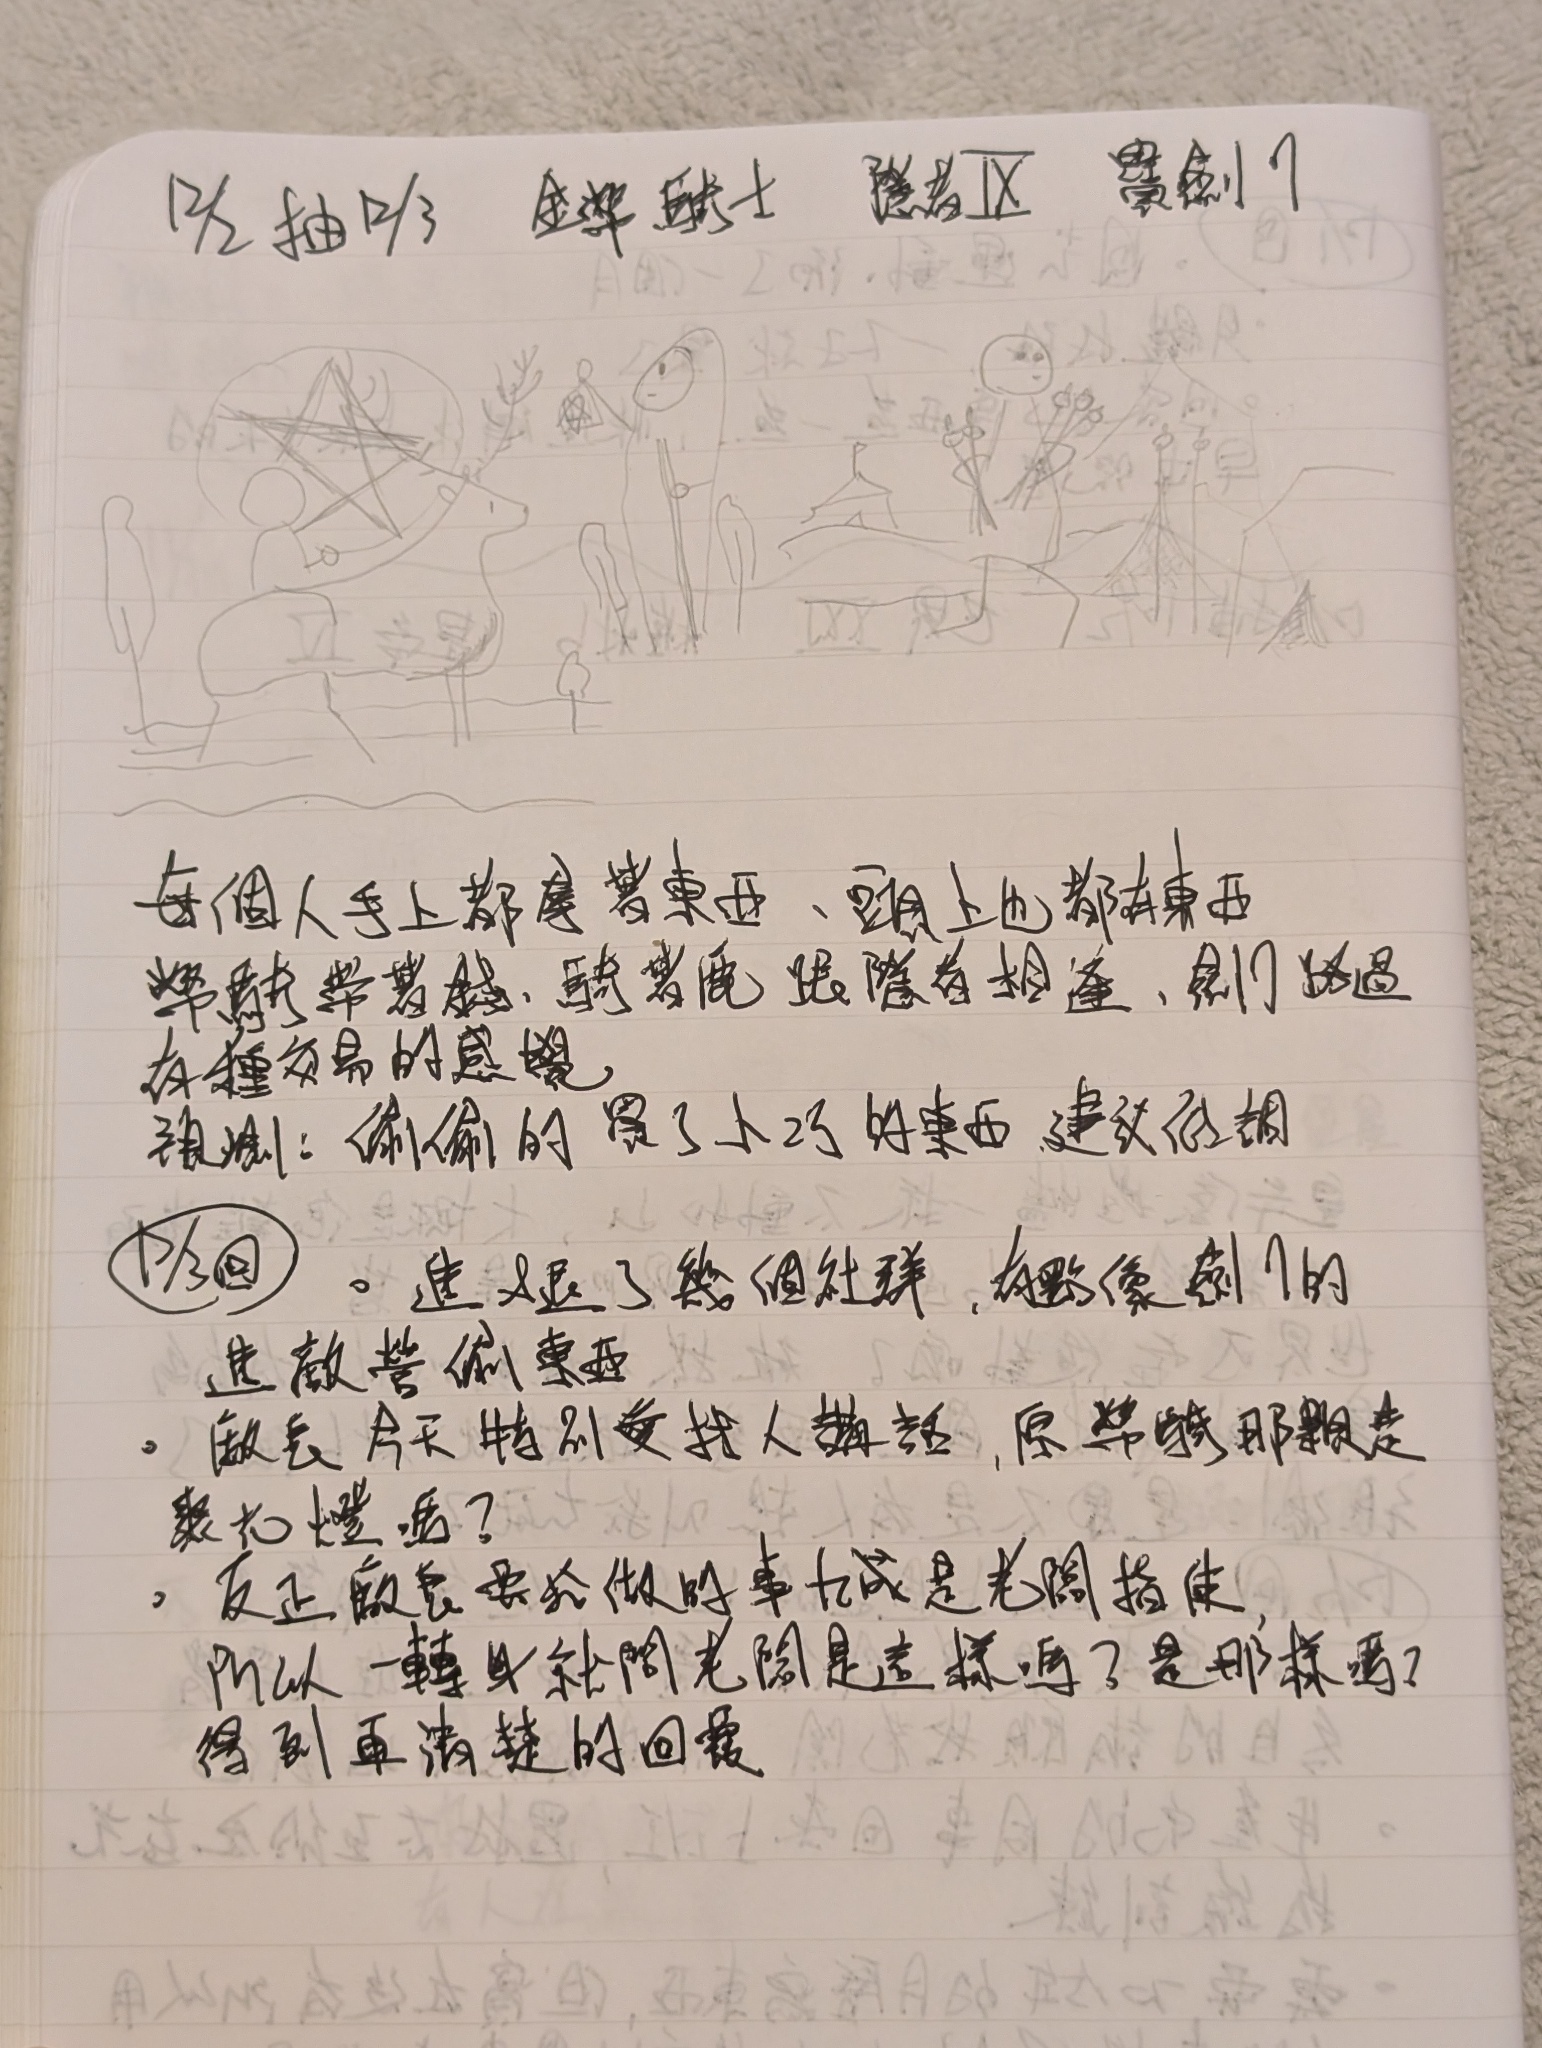 12/2 抽 12/3 金幣騎士 隱者IX 寶劍7
每個人手上都拿著東西、頭上也都有東西
幣騎帶著錢、騎著鹿跟隱者相逢、劍7路過
有種交易的感覺
預測：偷偷的買了小巧的東西 建議低調
12/3回 。進又退了幾個社群，有點像劍7的
進敵營偷東西
。廠長今天特別愛找人講話，原幣騎那顆是
聚光燈嗎？
。反正廠長要我做的事九成是老闆指使，
所以一轉身就問老闆是這樣嗎？是那樣嗎？
得到更清楚的回覆